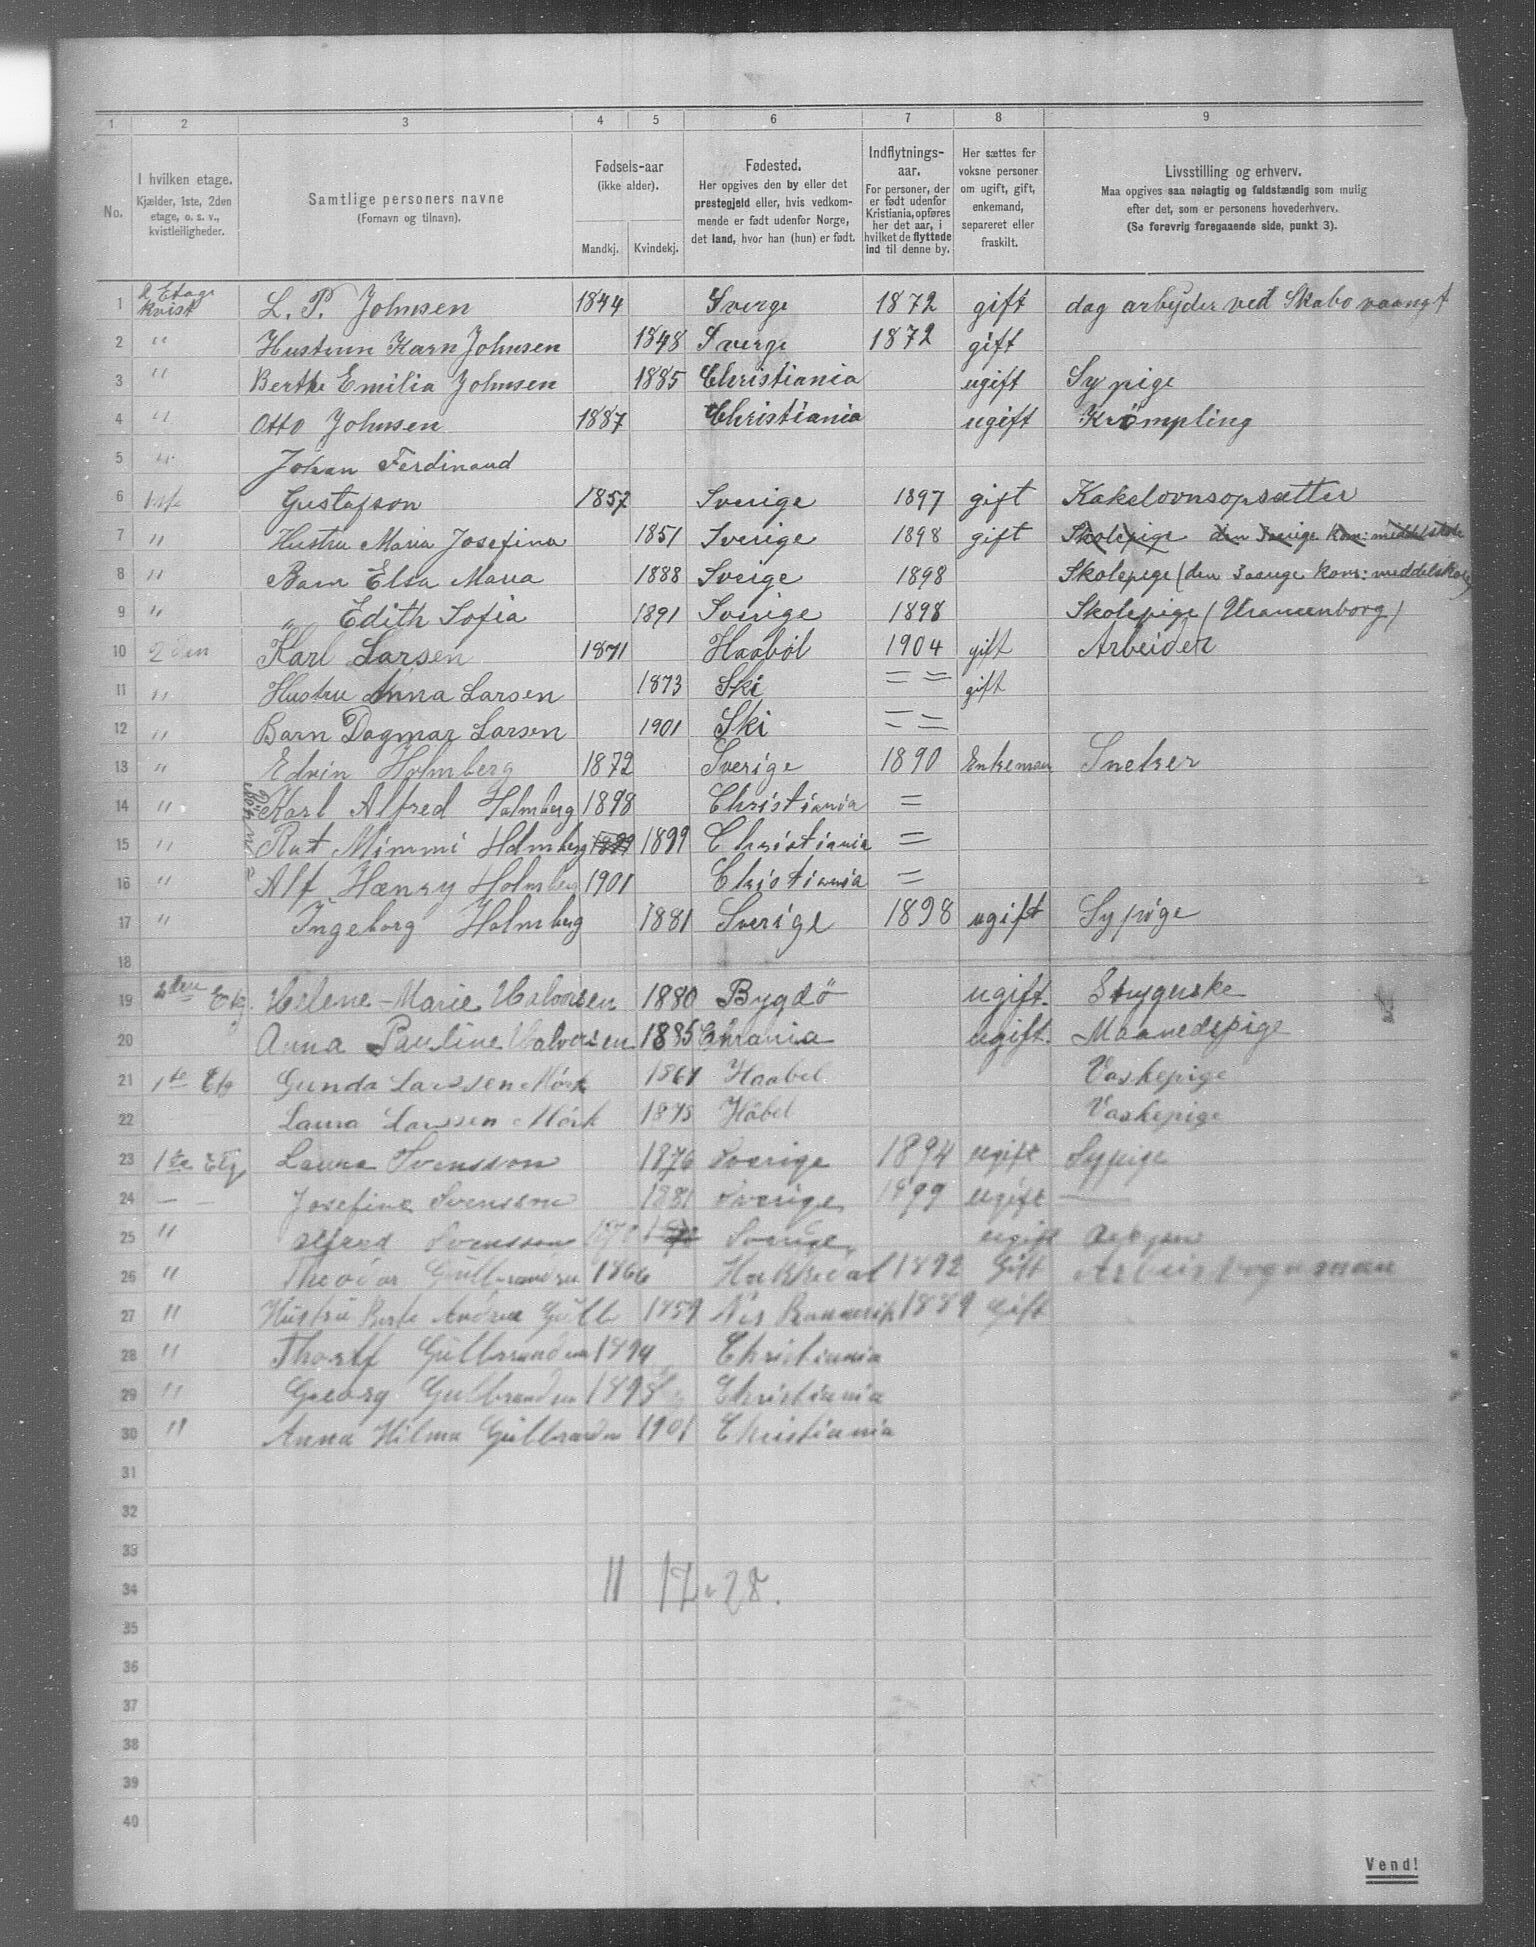 1 2 3 4 5 6 7 8 9
No.
I hvilken etage.
Kjælder, 1ste, 2den
etage, o. s. v.,
kvistleiligheder.
Samtlige personers navne
(Fornavn og tilnavn).
Fødsels-aar
(ikke alder).
Mandkj. Kvindekj.
Fødested.
Her opgives den by eller det
prestegjeld eller, hvis vedkom-
mende er født udenfor Norge,
det land, hvor han (hun) er født.
Indflytnings-
aar.
For personer, der
er født udenfor
Kristiania, opføres
her det aar, i
hvilket de flyttede
ind til denne by.
Her sættes for
voksne personer
om ugift, gift,
enkemand,
separeret eller
fraskilt.
Livsstilling og erhverv.
Maa opgives saa nøiagtig og fuldstændig som mulig
efter det, som er personens hovederhverv.
(Se forøvrig foregaaende side, punkt 3).
1 2 Etage kvist L. P. Johnsen 1844 Sverge 1872 gift dag arbejder ved Skabo vaangf
2 " Hustrun Karn Johnsen 1848 Sverge 1872 gift
3 " Berthe Emilia Johnsen 1885 Christiania ugift Sypige
4 " Otto Johnsen 1887 Christiania ugift Krömpling
5 " Johan Ferdinand
6 1ste Gustafson 1857 Sverige 1897 gift Kakelovnsopsætter
7 " Hustru Maria Josefina 1851 Sverige 1898 gift Skolepige den 3aarige kom: meddelskole
8 " Barn Elsa Maria 1888 Sverge 1898 Skolepige (den 3aarige kom: meddelskole)
9 " " Edith Sofia 1891 Sverige 1898 Skolepige (Uranienborg)
10 2den Karl Larsen 1871 Haaböl 1904 gift Arbeider
11 " Hustru Anna Larsen 1873 Ski = = gift
12 " Barn Dagmar Larsen 1901 Ski = =
13 " Edvin Holmberg 1872 Sverige 1890 Enkeman Snekker
14 " Karl Alfred Holmberg 1898 Christiania =
15 " Rut Mimmi Holmberg 1899 1899 Christiania =
16 " Alf Hænry Holmberg 1901 Christiania =
17 " Ingeborg Holmberg 1881 Sverige 1898 ugift Sypige
18
19 2den Etg. Helene-Marie Halvorsen 1880 Bygdö ugift. Strygerske
20 Anna Pauline Halvorsen 1885 Chrania ugift. Maanedspige
21 1ste Etg Gunda Larssen Mörk 1861 Haabel Vaskepige
22 Laura Larssen Mörk 1875 Häbel Vaskepige
23 1ste Etg Laura Svensson 1876 Sverige 1894 ugift Sypige
24 — — Josefine Svensson 1881 Sverige 1899 ugift —
25 " Alfred Svensson 1870 Sverige ugift
26 " Theodor Gulbrandsen 1866 Hakkedal 1892 Gift
27 " Hustru Berte Andrea Gulb 1859 Nes Romerike 1889 Gift
28 " Thorlf Gulbrandsen 1894 Christiania
29 " Georg Gulbrandsen 1898 Christiania
30 " Anna Hilma Gulbrandsen 1901 Christiania
31
32
33
34 11 17 . 28.
35
36
37
38
39
40
Vend!